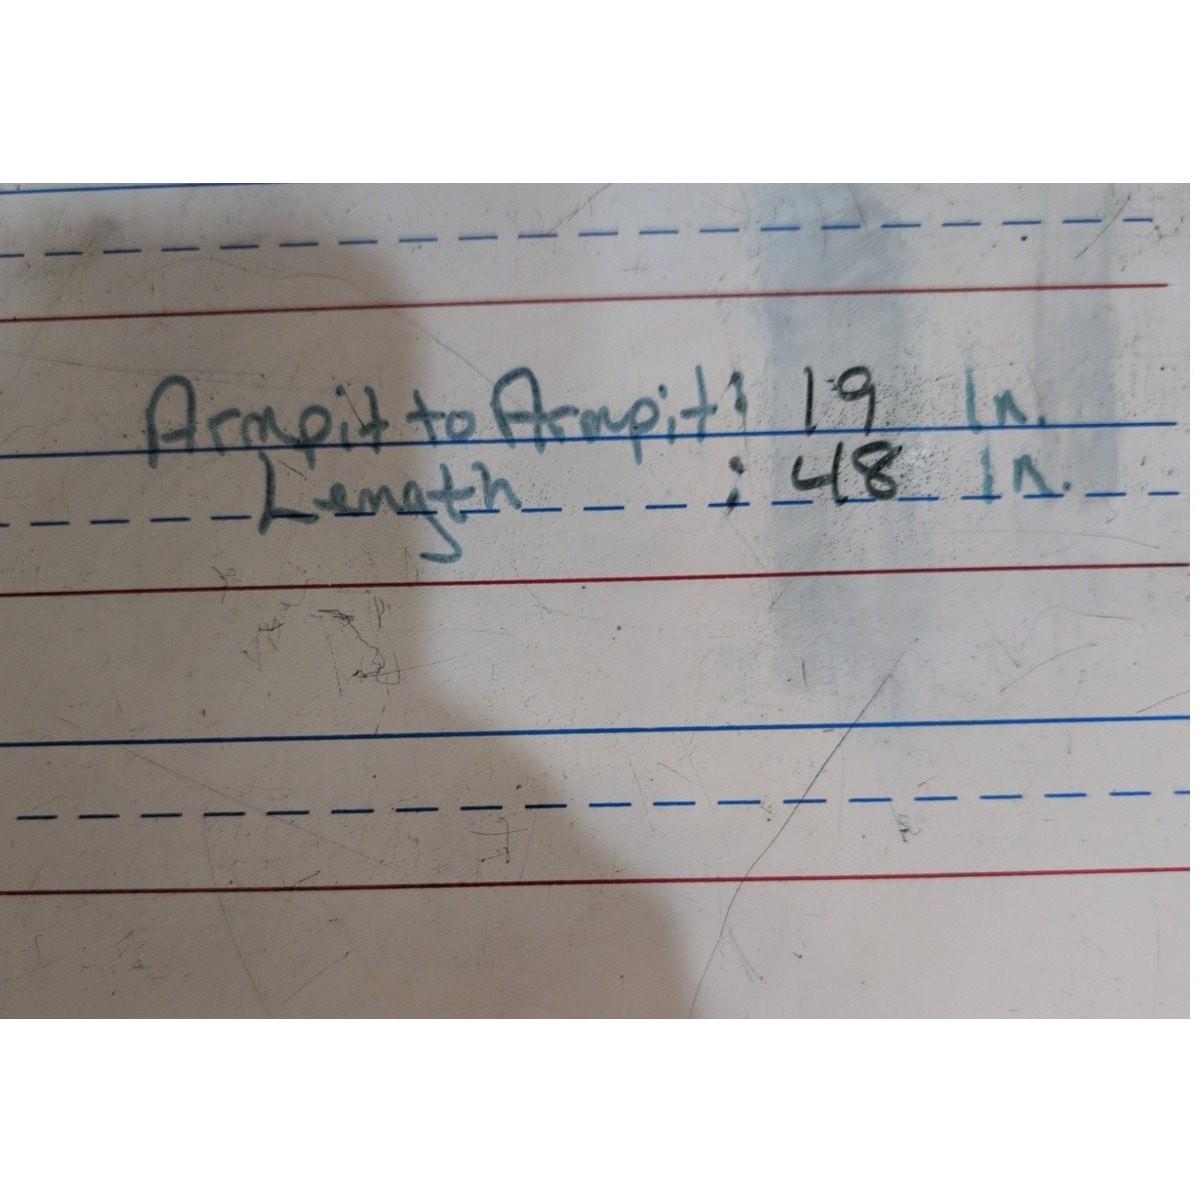 Armpit to Armpit: 19 In.
Length : 48 In.